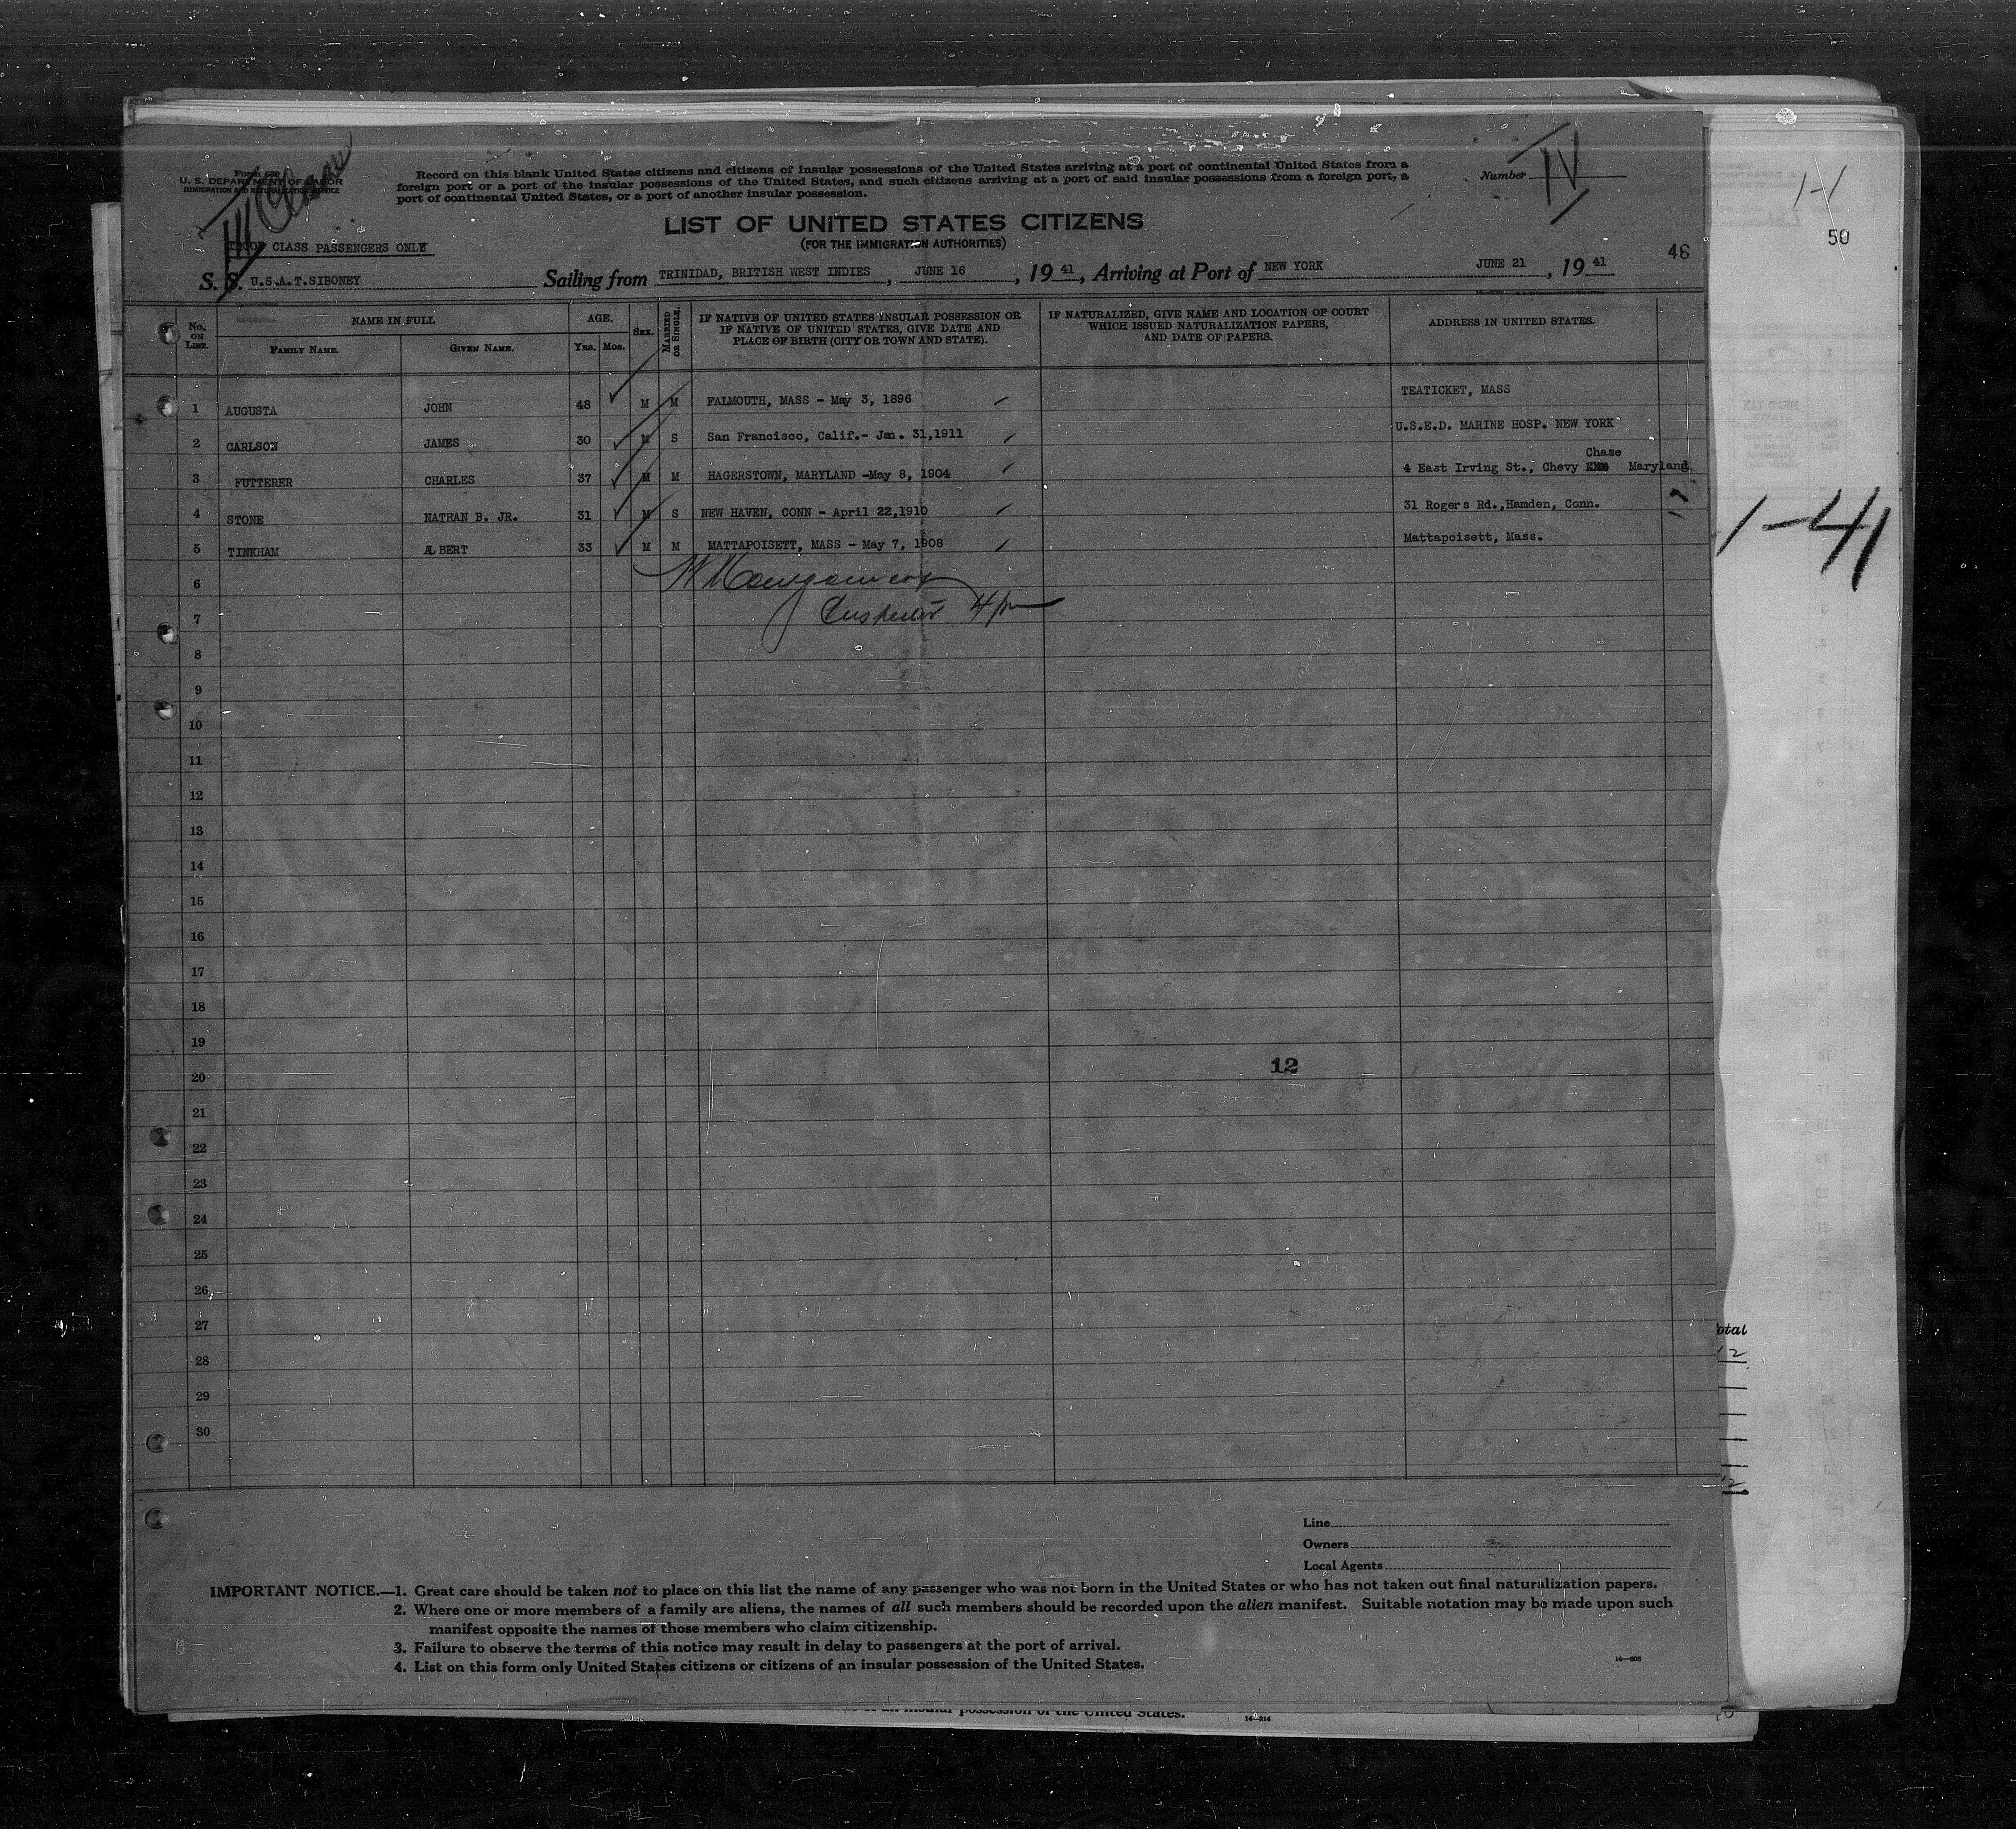 Form 630
U. S. DEPARTMENT OF LABOR
IMMIGRATION AND NATURALIZATION SERVICE
III Class
Record on this blank United States citizens and citizens of insular possessions of the United States arriving at a port of continental United States from a
foreign port or a port of the insular possessions of the United States, and such citizens arriving at a port of said insular possessions from a foreign port, a
port of continental United States, or a port of another insular possession.
Number IV
50
LIST OF UNITED STATES CITIZENS
(FOR THE IMMIGRATION AUTHORITIES)
TROOP CLASS PASSENGERS ONLY
46
S. S. U.S.A.T.SIBONEY Sailing from TRINIDAD, BRITISH WEST INDIES, JUNE 16, 19 41, Arriving at Port of NEW YORK JUNE 21, 19 41
No. ON LIST. NAME IN FULL AGE. SEX. MARRIED OR SINGLE. IF NATIVE OF UNITED STATES INSULAR POSSESSION OR IF NATIVE OF UNITED STATES, GIVE DATE AND PLACE OF BIRTH (CITY OR TOWN AND STATE). IF NATURALIZED, GIVE NAME AND LOCATION OF COURT WHICH ISSUED NATURALIZATION PAPERS, AND DATE OF PAPERS. ADDRESS IN UNITED STATES.
FAMILY NAME. GIVEN NAME. YRS. MOS.
1 AUGUSTA JOHN 48 M M FALMOUTH, MASS - May 3, 1896 TEATICKET, MASS
2 CARLSON JAMES 30 M S San Francisco, Calif.- Jan. 31,1911 U.S.E.D. MARINE HOSP. NEW YORK
3 FUTTERER CHARLES 37 M M HAGERSTOWN, MARYLAND -May 8, 1904 4 East Irving St., Chevy Chase Maryland
4 STONE NATHAN B. JR. 31 M S NEW HAVEN, CONN - April 22,1910 31 Rogers Rd.,Hamden, Conn.
5 TINKHAM ALBERT 33 M M MATTAPOISETT, MASS - May 7, 1908 Mattapoisett, Mass.
1-41
6
7 Inspector
8
9
10
11
12
13
14
15
16
17
18
19
12
20
21
22
23
24
25
26
27
28
29
30
Line
Owners
Local Agents
IMPORTANT NOTICE.—1. Great care should be taken not to place on this list the name of any passenger who was not born in the United States or who has not taken out final naturalization papers.
2. Where one or more members of a family are aliens, the names of all such members should be recorded upon the alien manifest. Suitable notation may be made upon such
manifest opposite the names of those members who claim citizenship.
3. Failure to observe the terms of this notice may result in delay to passengers at the port of arrival.
4. List on this form only United States citizens or citizens of an insular possession of the United States.
insular possession of the United States.
14—214